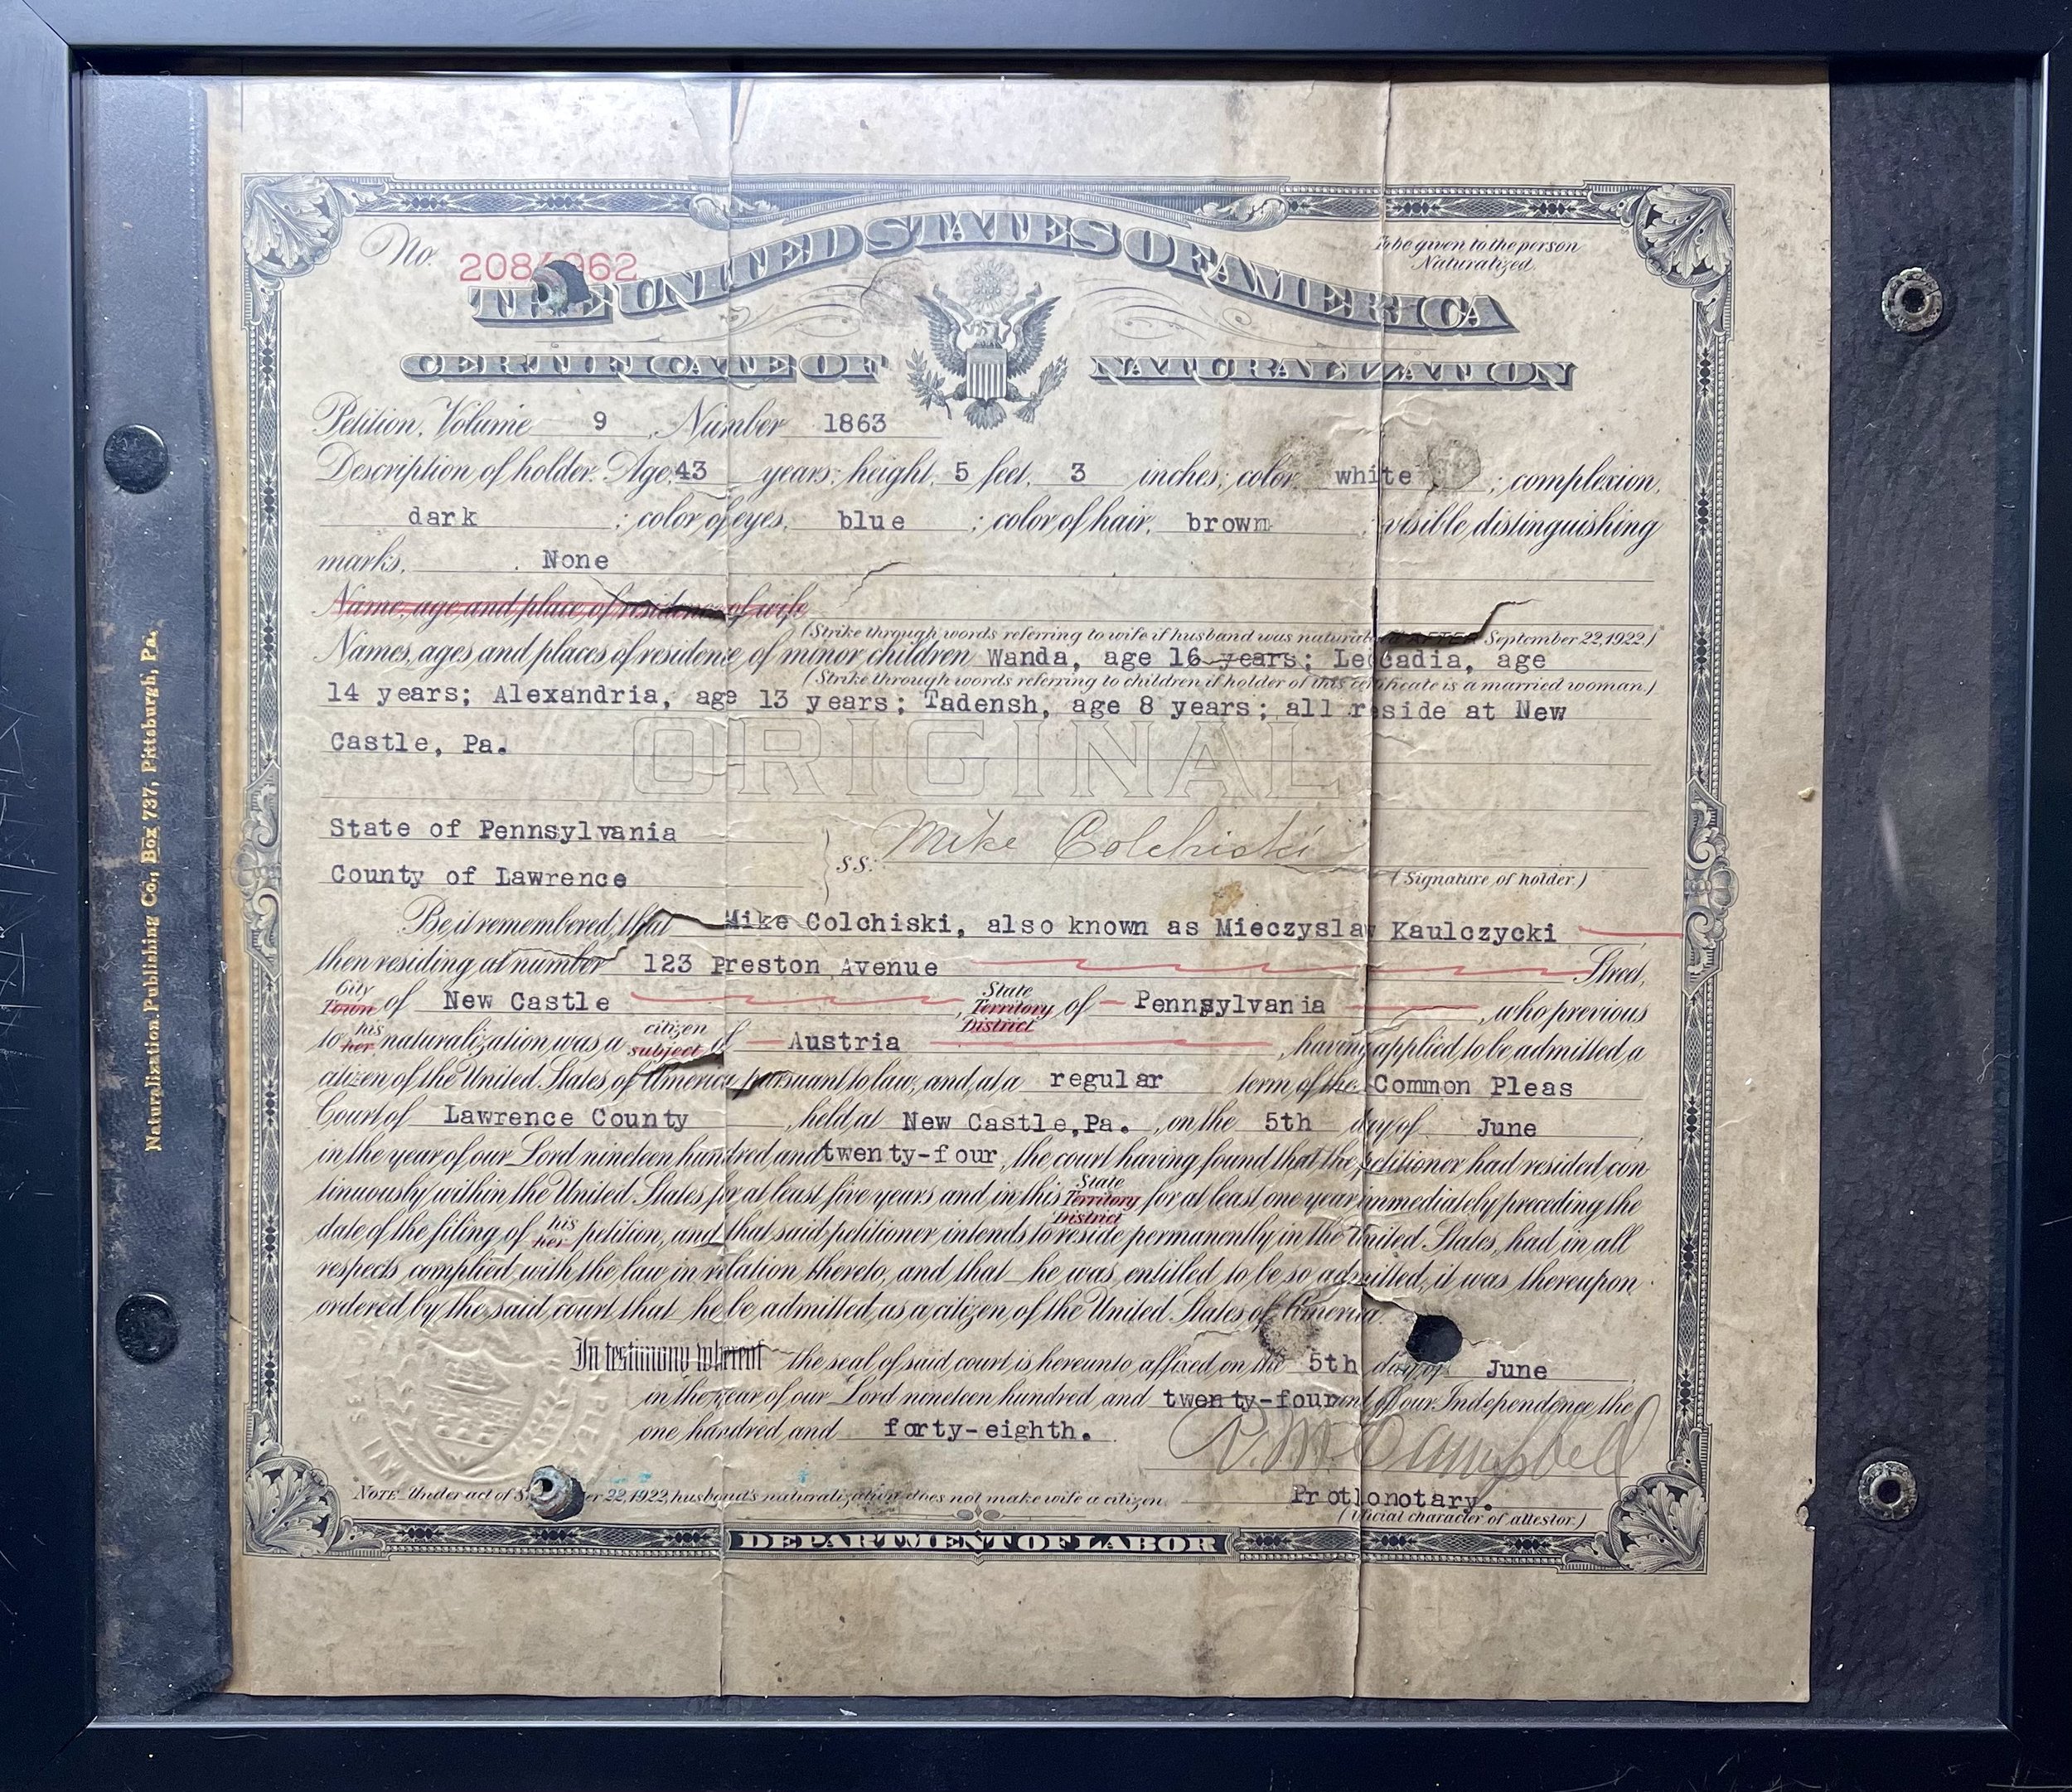 To be given to the person
Naturalized.
No. 208
THE UNITED STATES OF AMERICA
CERTIFICATE OF NATURALIZATION
Petition, Volume 9, Number 1863
Description of holder: Age, 43 years; height, 5 feet, 3 inches; color, white; complexion,
dark; color of eyes, blue; color of hair, brown; visible distinguishing
marks, None
Name, age and place of residence of wife
(Strike through words referring to wife if husband was naturalized AFTER September 22, 1922.)
Names, ages and places of residence of minor children Wanda, age 16 years; Leocadia, age
(Strike through words referring to children if holder of this certificate is a married woman.)
14 years; Alexandria, age 13 years; Tadensh, age 8 years; all reside at New
Castle, Pa.
ORIGINAL
State of Pennsylvania
County of Lawrence
ss: Mike Colchiski
(Signature of holder.)
Be it remembered, that Mike Colchiski, also known as Mieczyslaw Kaulczycki
then residing at number 123 Preston Avenue Street,
City
Town of New Castle, State Territory District of Pennsylvania, who previous
to his her naturalization was a citizen subject of Austria, having applied to be admitted a
citizen of the United States of America pursuant to law, and, at a regular term of the Common Pleas
Court of Lawrence County, held at New Castle, Pa., on the 5th day of June
in the year of our Lord nineteen hundred and twenty-four, the court having found that the petitioner had resided con
tinuously within the United States for at least five years and in this State Territory District for at least one year immediately preceding the
date of the filing of his her petition, and that said petitioner intends to reside permanently in the United States, had in all
respects complied with the law in relation thereto, and that he was entitled to be so admitted, it was thereupon
ordered by the said court that he be admitted as a citizen of the United States of America.
In testimony whereof the seal of said court is hereunto affixed on the 5th day of June
in the year of our Lord nineteen hundred and twenty-four and of our Independence the
one hundred and forty-eighth.
Campbell
NOTE Under act of 22, 1922, husband's naturalization does not make wife a citizen
Prothonotary.
(Official character of attestor.)
DEPARTMENT OF LABOR
Naturalization Publishing Co., Box 737, Pittsburgh, Pa.